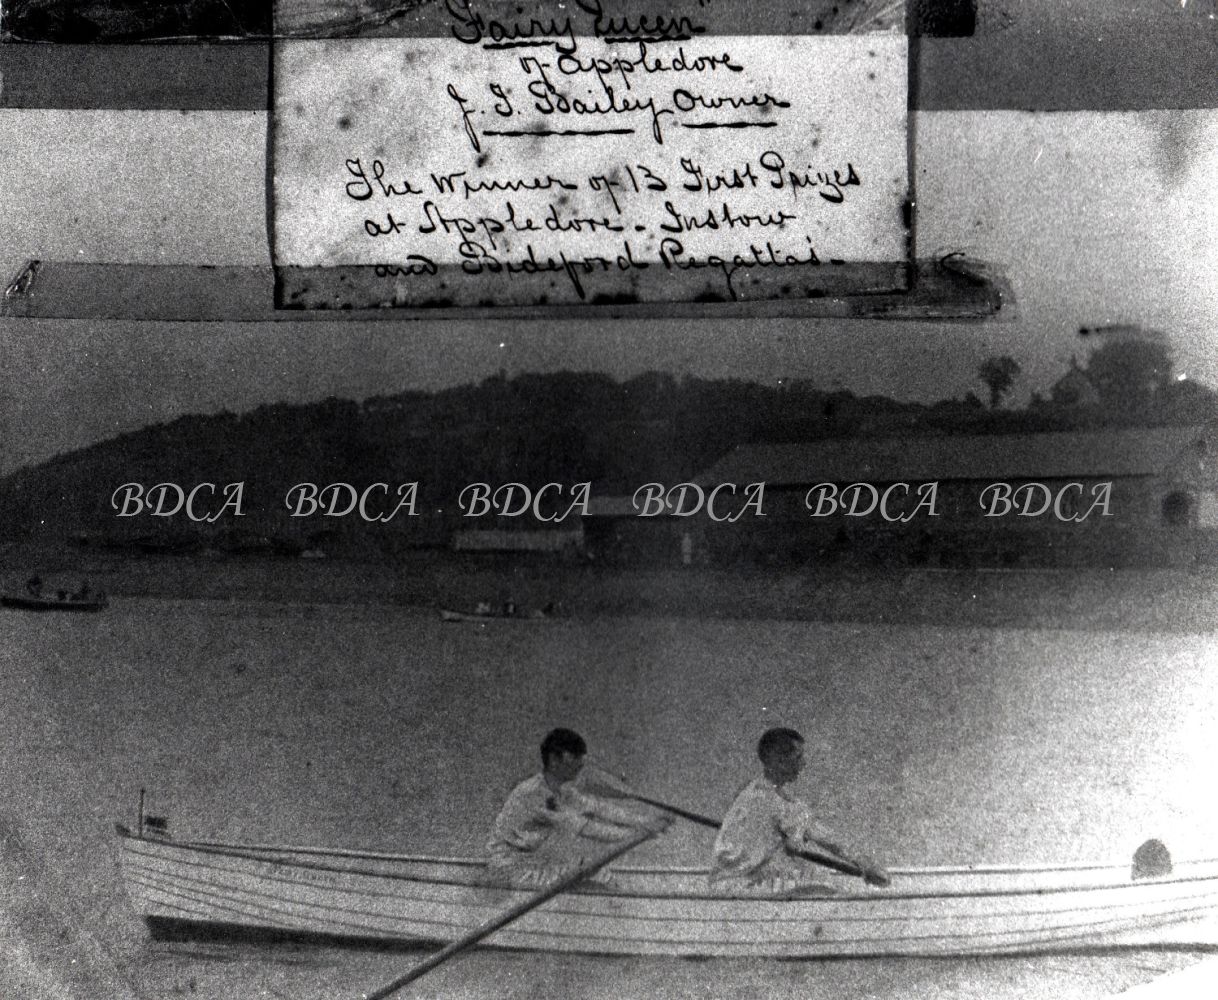 "Fairy Queen"
of Appledore
J. I. Bailey Owner
The Winner of 13 First Prizes
at Appledore - Instow
and Bideford Regattas -
BDCA BDCA BDCA BDCA BDCA BDCA